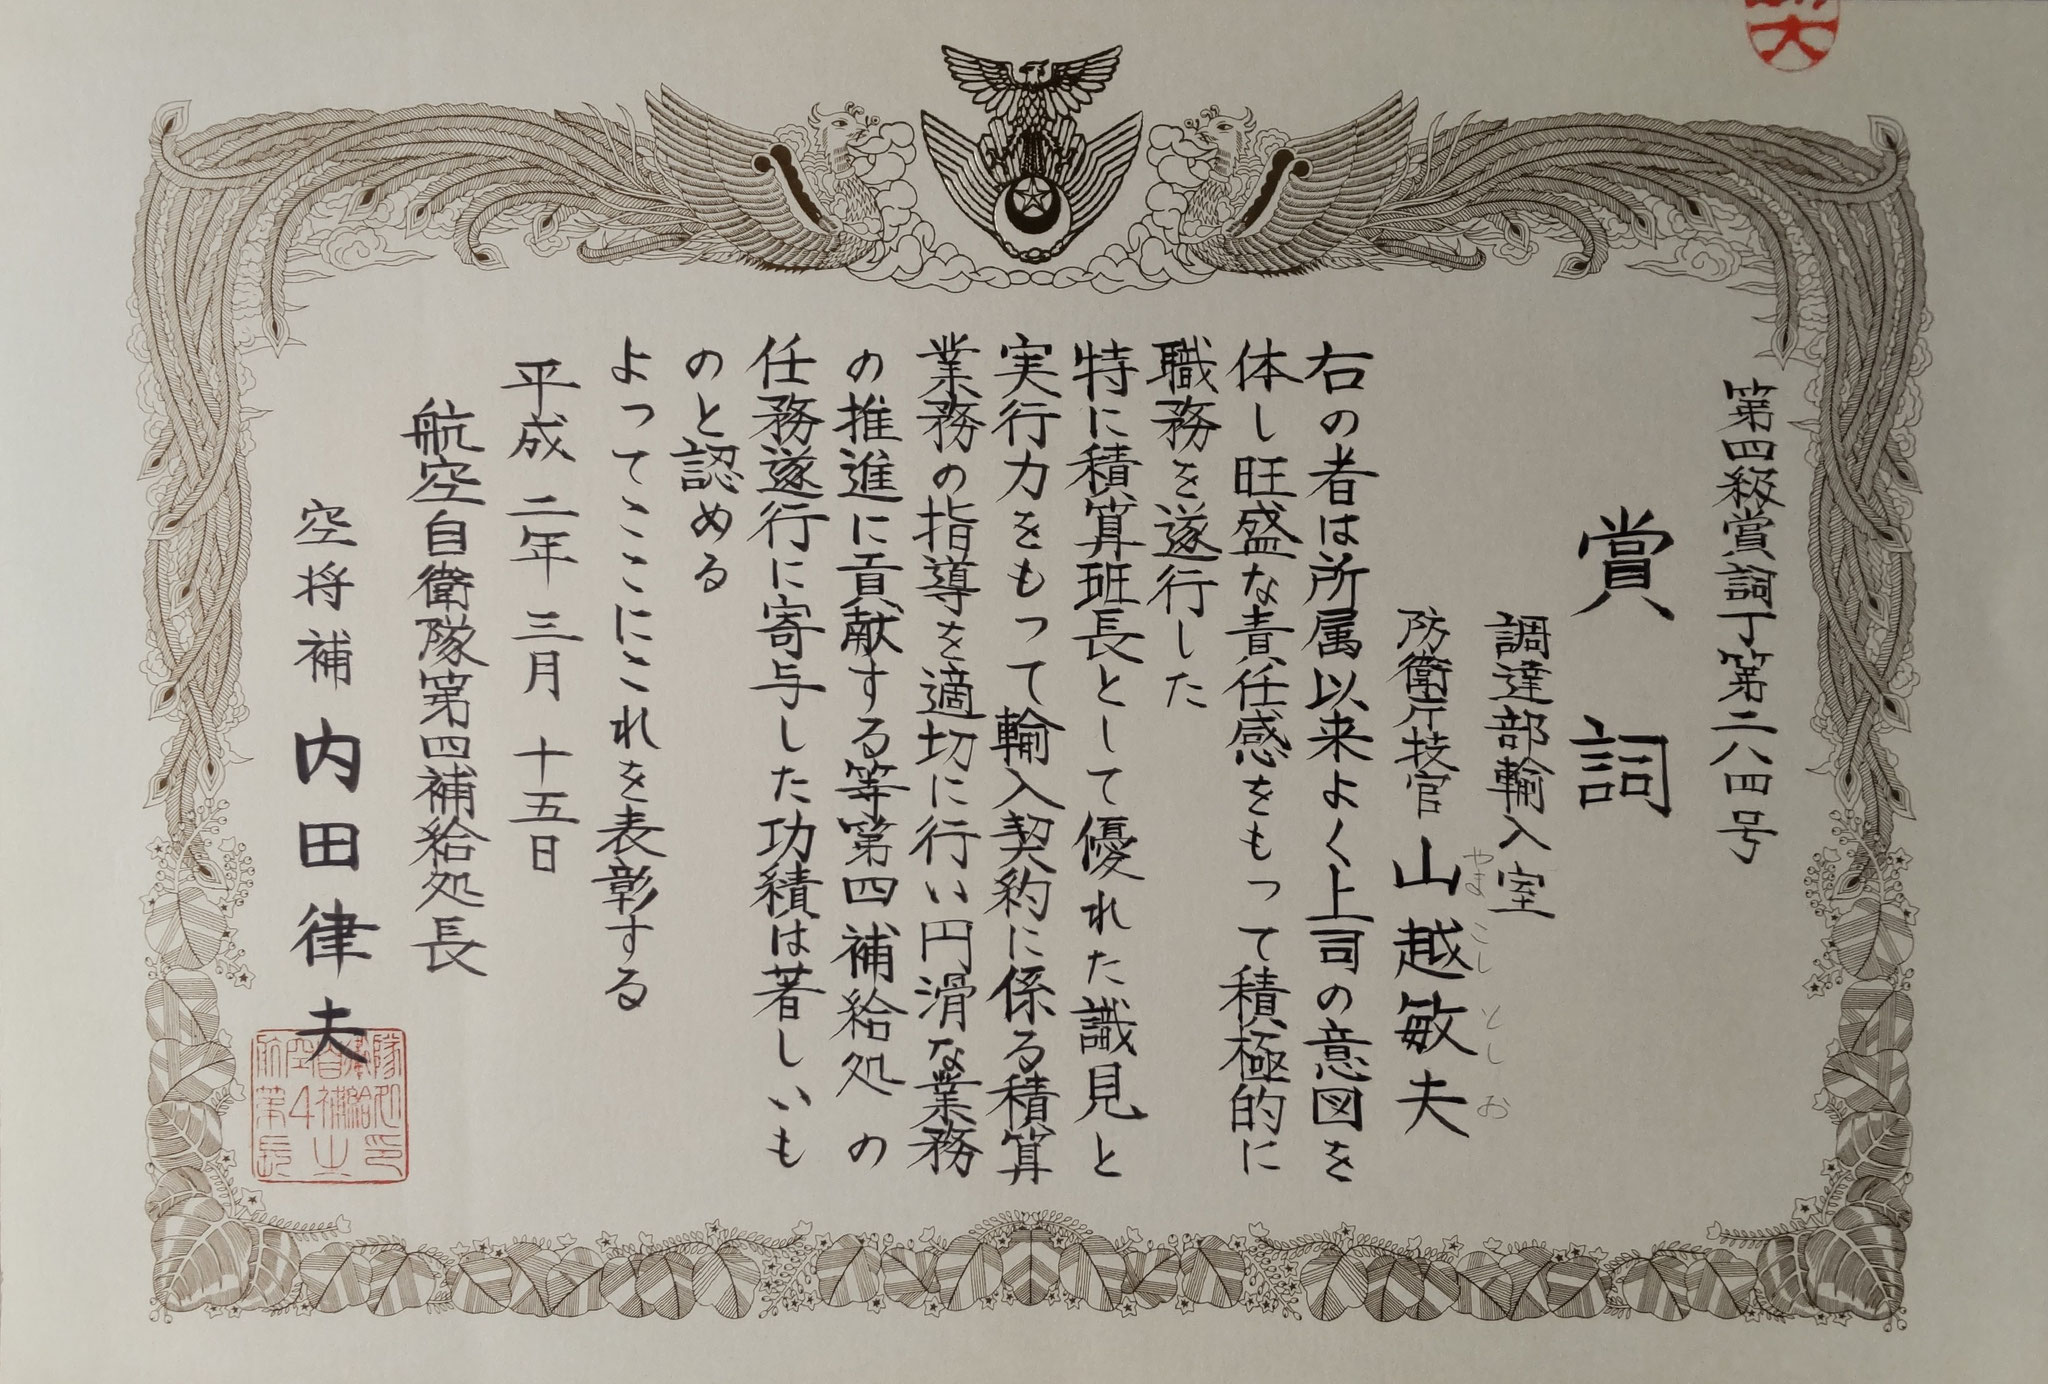 第四級賞詞丁第二八四号
賞詞
調達部輸入室
防衛庁技官 山越敏夫
やまこし としお
右の者は所属以来よく上司の意図を
体し旺盛な責任感をもって積極的に
職務を遂行した
特に積算班長として優れた識見と
実行力をもって輸入契約に係る積算
業務の指導を適切に行い円滑な業務
の推進に貢献する等第四補給処の
任務遂行に寄与した功績は著しいも
のと認める
よってここにこれを表彰する
平成二年三月十五日
航空自衛隊第四補給処長
空将補 内田律夫
航空自衛隊
第4補給処
長之印